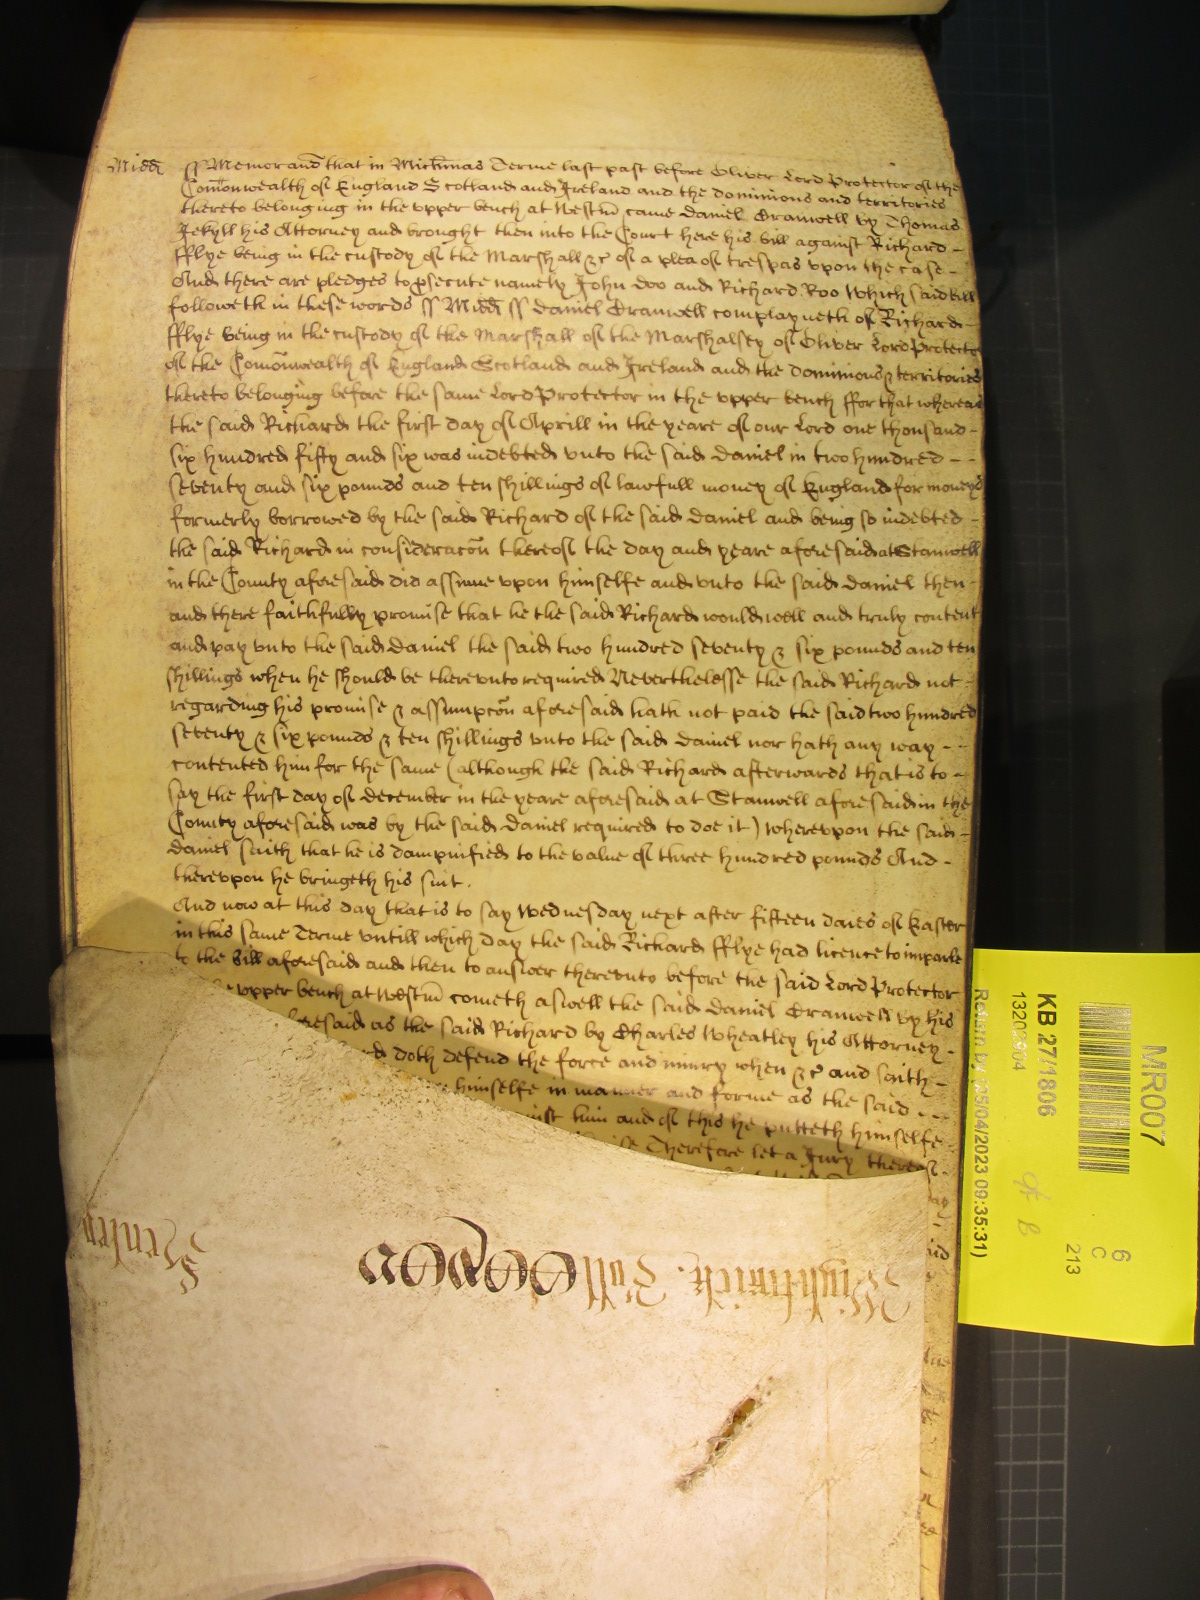 Midd ss Memorand that in Michmas Terme last past before Oliver Lord Protector of the
Comonwealth of England Scotland and Ireland and the dominions and territories
thereto belonging in the upper bench at Westm came Daniel Cramwell by Thomas
Jekyll his Attorney and brought then into the Court here his bill against Richard
fflye being in the custody of the Marshall &c of a plea of trespas upon the case
And there are pledges to psecute namely John Doo and Richard Roo Which said bill
followeth in these words ss Midd ss Daniel Cramwell complayneth of Richard
fflye being in the custody of the Marshall of the Marshalsey of Oliver Lord Protector
of the Comonwealth of England Scotland and Ireland and the dominions & territories
thereto belonging before the same Lord Protector in the upper bench ffor that whereas
the said Richard the first day of Aprill in the yeare of our Lord one thousand
six hundred fifty and six was indebted unto the said Daniel in two hundred
seventy and six pounds and ten shillings of lawfull money of England for moneys
formerly borrowed by the said Richard of the said Daniel and being so indebted
the said Richard in consideracon thereof the day and yeare aforesaid at Stanwell
in the County aforesaid did assume upon himselfe and unto the said Daniel then
and there faithfully promise that he the said Richard would well and truly content
and pay unto the said Daniel the said two hundred seventy & six pounds and ten
shillings when he should be thereunto required Neverthelesse the said Richard not
regarding his promise & assumpcon aforesaid hath not paid the said two hundred
seventy & six pounds & ten shillings unto the said Daniel nor hath any way
contented him for the same (although the said Richard afterwards that is to
say the first day of December in the yeare aforesaid at Stanwell aforesaid in the
County aforesaid was by the said Daniel required to doe it) whereupon the said
Daniel saith that he is dampnified to the value of three hundred pounds And
thereupon he bringeth his suit.
And now at this day that is to say Wednesday next after fifteen daies of Easter
in this same Terme untill which day the said Richard fflye had licence to imparle
to the bill aforesaid and then to answer thereunto before the said Lord Protector
upper bench at Westm cometh aswell the said Daniel Cramwell by his
aforesaid as the said Richard by Charles Wheatley his Attorney
doth defend the force and iniury when &c and saith
himselfe in manner and forme as the said
him and of this he putteth himselfe
Therefore let a Jury thereof
Wightwick
MR007
KB 27/1806
13202904
Return by (25/04/2023 09:35:31)
6
C
213